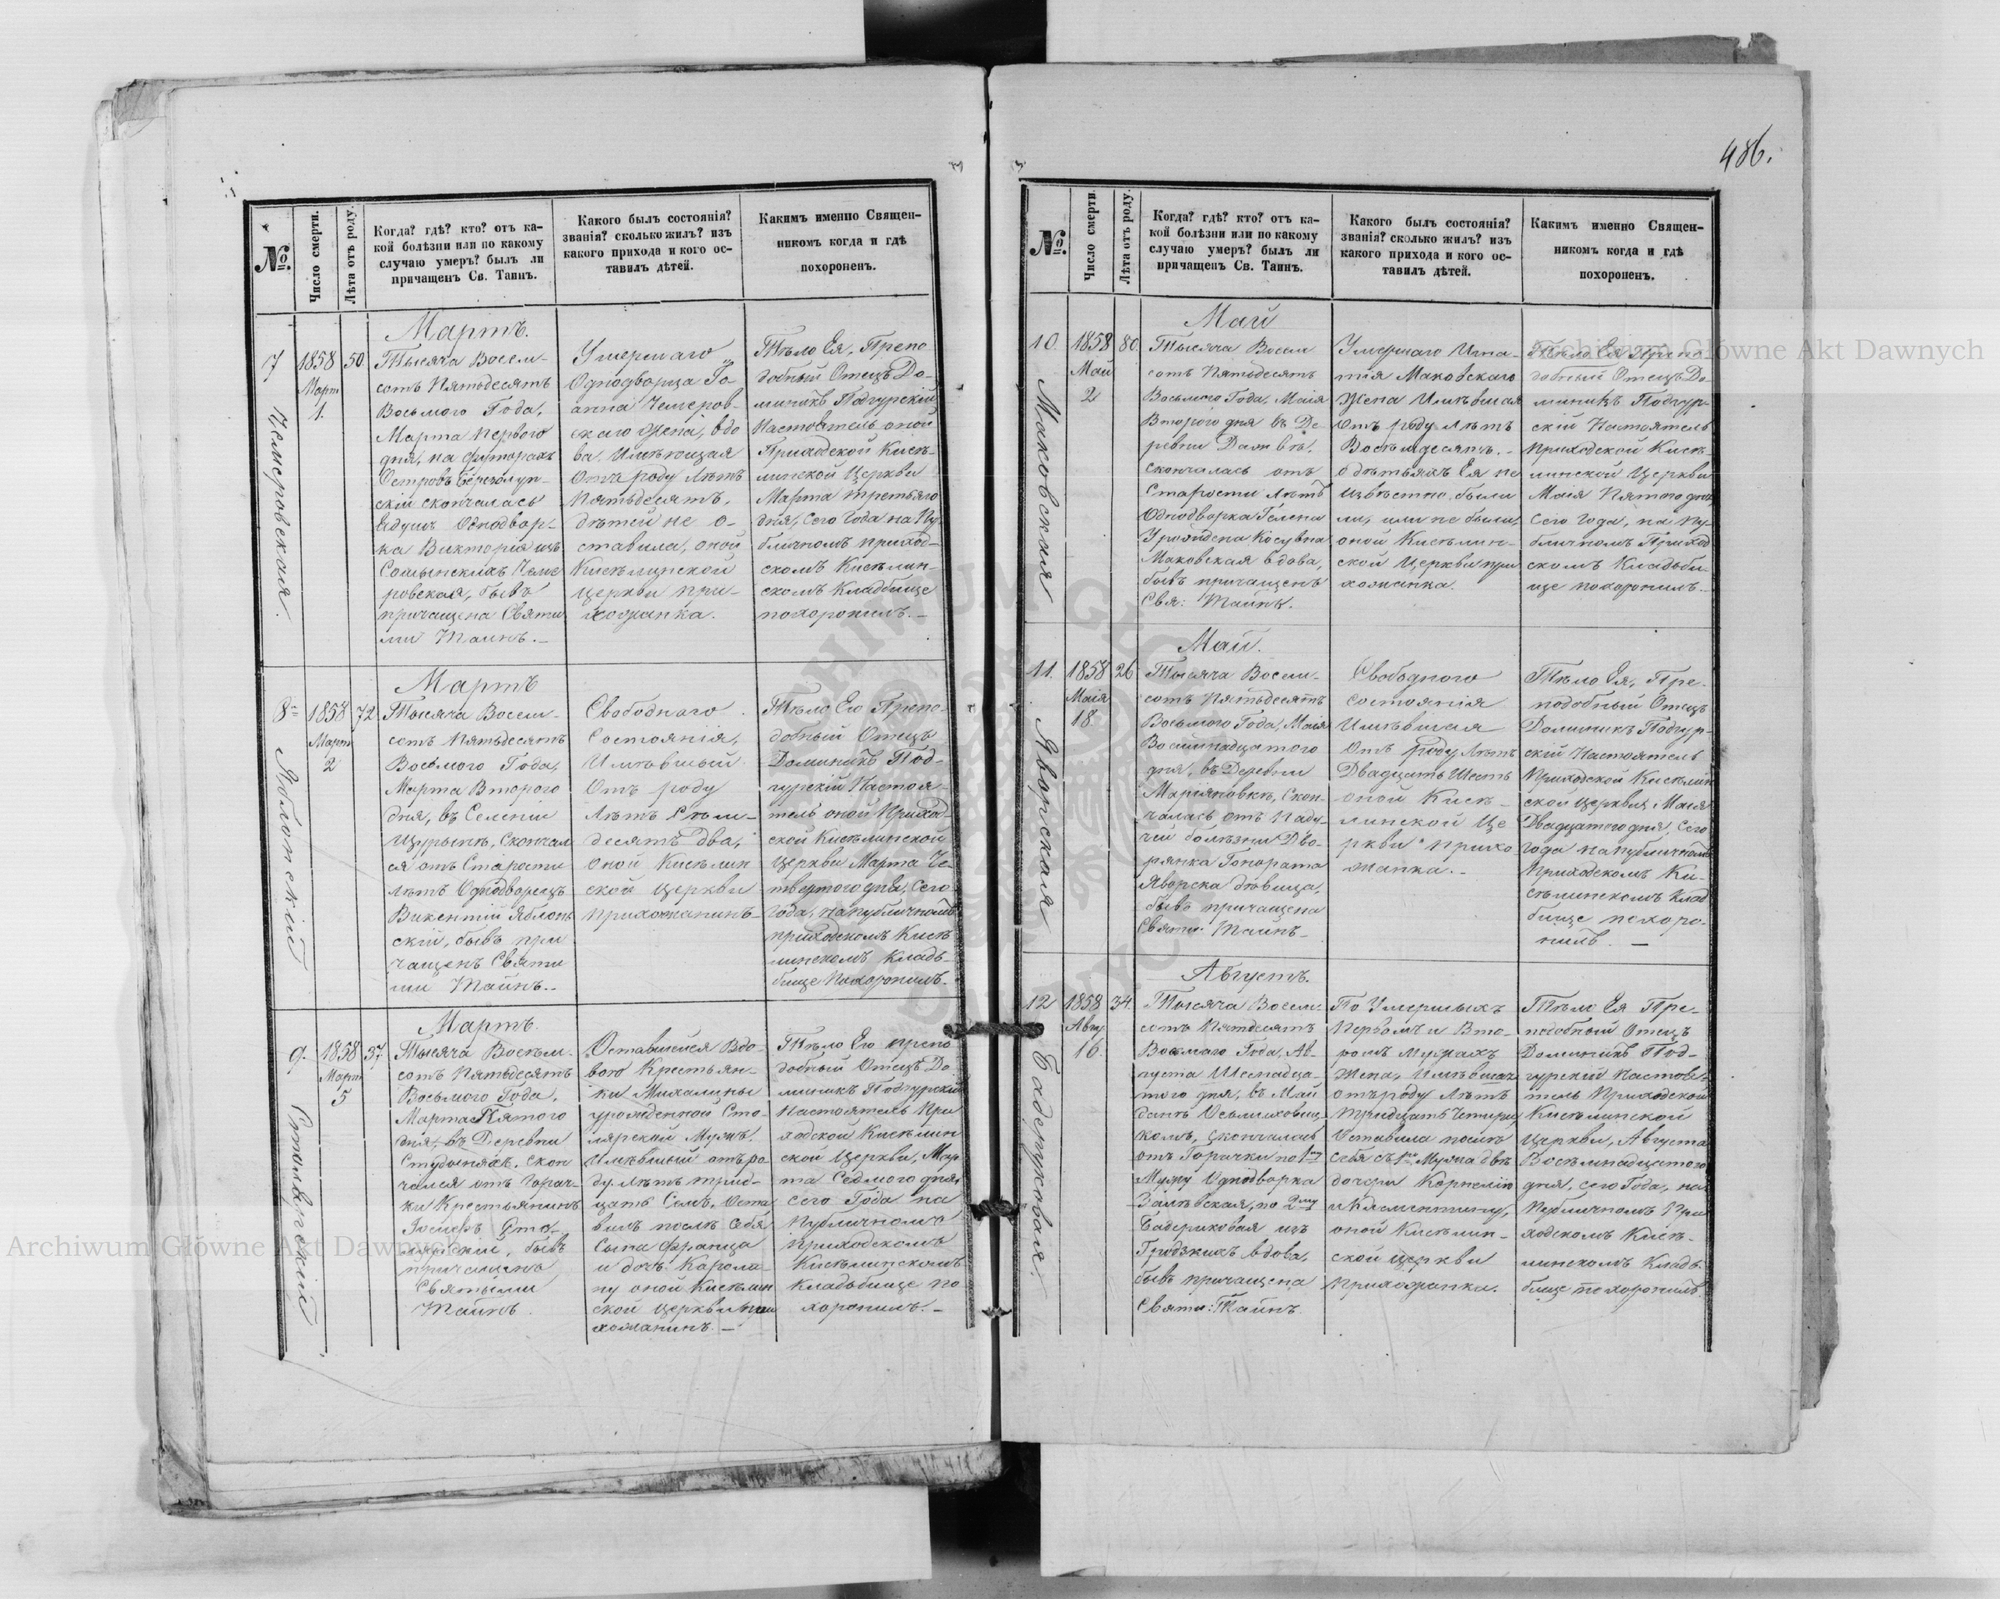 486.
№.
Число смерти.
Лѣта отъ роду.
Когда? гдѣ? кто? отъ ка-
кой болѣзни или по какому
случаю умеръ? былъ ли
причащенъ Св. Таинъ.
Какого былъ состоянія?
званія? сколько жилъ? изъ
какого прихода и кого ос-
тавилъ дѣтей.
Какимъ именно Священ-
никомъ когда и гдѣ
похороненъ.
7
Чемеровская.
1858
Март
1.
50.
Мартъ.
Тысяча Восем-
сотъ Пятьдесятъ
Восьмого Года,
Марта Первого
дня, на футорахъ
Островъ
скій скончалась
Одноднор-
ка Викторія изъ
Чеме
ровская, бывъ
причащена Святы
ми Тайнъ.—
Умершаго
Однодворца Іо-
анна Чемеров-
скаго жена, вдо
ва. Имѣющая
отъ роду лѣтъ
Пятьдесятъ,
дѣтей не о-
ставила, оной
Кисѣлинской
церкви при-
хожанка.
Тѣло Ея, Препо
добный Отецъ До-
миникъ Подгурскій
Настоятель оной
Приходской Кисѣ-
линской Церкви
Марта третьяго
дня, сего Года на Пу
бличномъ приход-
скомъ Кисѣлин-
скомъ Кладбище
похоронилъ.—
8
Яблонскій
1858
Март
2
72
Мартъ
Тысяча Восем-
сотъ Пятьдесятъ
Восьмого Года,
Марта Второго
дня, въ Селеніи
скончал
ся отъ Старости
лѣтъ Однодворецъ
Викентій Яблон
скій, бывъ при
чащенъ Святы
ми Тайнъ.-
Свободнаго
Состоянія,
Имѣвшій
Отъ роду
Лѣтъ Семь-
десятъ два,
оной Кисѣлин
ской церкви
прихожанинъ-
Тѣло Его Препо-
добный Отецъ
Доминикъ Под-
гурскій Настоя-
тель оной Приход
ской Кисѣлинской
церкви Марта Че-
твертого дня, сего
Года, на публичномъ
приходскомъ Кисѣ
линскомъ Клад-
бище Похоронилъ.
9.
Столярскій
1858
Март
5
37
Мартъ.
Тысяча Восем-
сотъ Пятьдесятъ
Восьмого Года,
Марта Пятого
дня, въ Деревни
скон
чался отъ Горяч-
ки Крестьянинъ
Сто-
лярскій, бывъ
причащенъ
Святыми
Тайнъ.
Оставшейся Вдо-
вого Крестьян-
ки Михалины
урожденной Сто-
лярской Мужъ.
Имѣвшій отъ ро
ду лѣтъ трид-
цать Семь, Оста
вилъ послѣ Себя
Сына Франца
и дочь Кароли-
ну оной Кисѣлин
ской церкви при
хожанинъ.—
Тѣло Его препо
добный Отецъ До-
миникъ Подгурскій
Настоятель При
ходской Кисѣлин
ской Церкви, Мар
та Седмого дня,
сего Года на
Публичномъ
приходскомъ
Кисѣлинскомъ
Кладбище по
хоронилъ.—
№.
Число смерти.
Лѣта отъ роду.
Когда? гдѣ? кто? отъ ка-
кой болѣзни или по какому
случаю умеръ? былъ ли
причащенъ Св. Таинъ.
Какого былъ состоянія?
званія? сколько жилъ? изъ
какого прихода и кого ос-
тавилъ дѣтей.
Какимъ именно Священ-
никомъ когда и гдѣ
похороненъ.
10.
Маковская
1858
Май
2
80
Май
Тысяча Восем
сотъ Пятьдесятъ
Восьмого Года, Маія
Второго дня въ Де-
ревни
скончалась отъ
Старости лѣтъ
Однодворка Гелена
Урождена
Маковская вдова,
бывъ причащенъ
Свя: Тайнъ.
Умершаго Игна-
тія Маковскаго
Жена Имѣвшая
Отъ роду лѣтъ
Восемдесятъ.—
о дѣтьяхъ Ея не
извѣстно, были
ли, или не были,
оной Кисѣлин-
ской Церкви при
хожанка.
Тѣло Ея Препо-
добный Отецъ До
миникъ Подгур-
скій Настоятель
приходской Кисѣ-
линской Церкви
Маія Пятого дня,
сего года, на пу-
бличномъ Приход
скомъ Кладьби-
ще похоронилъ—
11.
Яворская
1858
Маія
18.
26
Май.
Тысяча Восем-
сотъ Пятьдесятъ
Восьмого Года, Маія
Восимнадцатого
дня, въ Деревни
Марьяновкѣ, Скон-
чалась отъ Паду-
чей болѣзни Дво-
рянка Гонората
Яворска дѣвица,
бывъ причащена
Святы: Тайнъ—
Свободного
состоянія
Имѣвшая
Отъ роду лѣтъ
Двадцать Шесть
оной Кисѣ-
линской Це
ркви прихо
жанка.—
Тѣло Ея, Пре-
подобный Отецъ
Доминикъ Подгур-
скій Настоятель
Приходской Кисѣлин
ской Церкви, Маія
Двадцатого дня, сего
года на публичномъ
Приходскомъ Ки-
сѣлинскомъ Клад
бище похоро-
нилъ. —
12
1858
Авгу
16.
34.
Августъ.
Тысяча Восем-
сотъ Пятдесятъ
Восмаго Года, Ав-
густа Шеснадца-
того дня, въ Май
скончалась
отъ Горячки по 1му
Мужу Однодворка
по 2му
изъ
вдова,
бывъ причащена
Святы: Тайнъ.
По Умершыхъ
Первомъ и Вто-
ромъ Мужахъ
Жена, Имѣвшая
отъ роду лѣтъ
Тридцать Четыри,
Оставила послѣ
себя съ 1го Мужа двѣ
дочери Корнелію
и Клементину,
оной Кисѣлин-
ской церкви
прихожанка.
Тѣло Ея Пре-
подобный Отецъ
Доминикъ Под-
гурскій Настоя-
тель Приходской
Кисѣлинской
Церкви, Августа
Восѣмнадцатого
дня, сего Года, на
Публичномъ При
ходскомъ Кисѣ-
линскомъ Кладь-
бище похоронилъ.
Archiwum Główne Akt Dawnych
Archiwum Główne Akt Dawnych